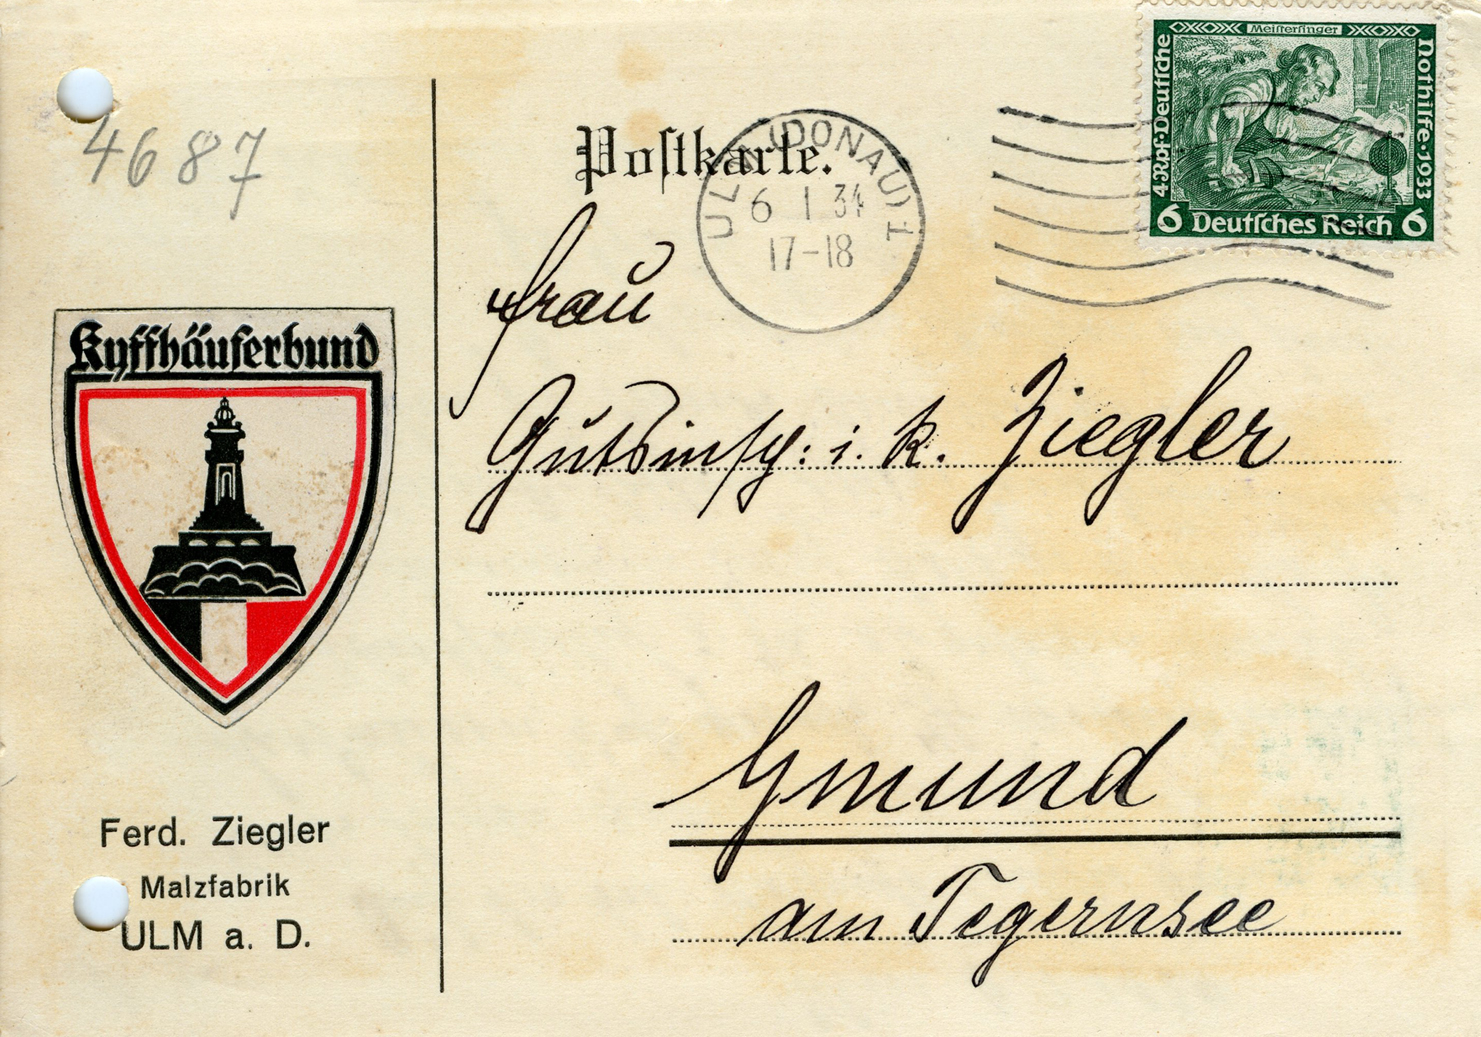 4687
Kyffhäuserbund
Ferd. Ziegler
Malzfabrik
ULM a. D.
Postkarte.
ULM (DONAU) 1
6 1 34
17-18
Meistersinger
4 Rpf·Deutsche
Nothilfe·1933
6 Deutsches Reich 6
Frau
Gutsinsp: i. R. Ziegler
Gmund
am Tegernsee